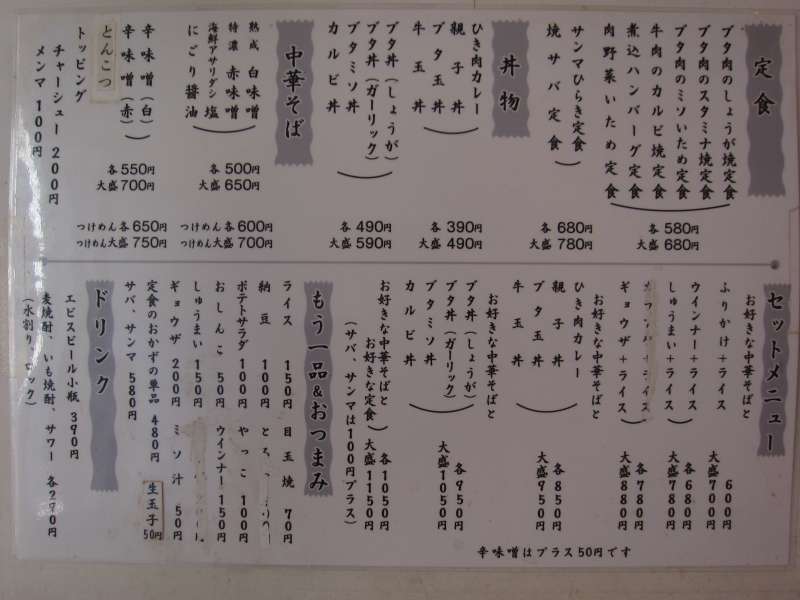 定食
ブタ肉のしょうが焼定食
ブタ肉のスタミナ焼定食
ブタ肉のミソいため定食
牛肉のカルビ焼定食
煮込ハンバーグ定食
肉野菜いため定食
各580円
大盛680円
サンマひらき定食
焼サバ定食
各680円
大盛780円
丼物
ひき肉カレー
親子丼
ブタ玉丼
牛玉丼
各390円
大盛490円
ブタ丼(しょうが)
ブタ丼(ガーリック)
ブタミソ丼
カルビ丼
各490円
大盛590円
中華そば
熟成 白味噌
特濃 赤味噌
海鮮アサリダシ塩
にごり醤油
各500円
大盛650円
つけめん各600円
つけめん大盛700円
辛味噌(白)
辛味噌(赤)
とんこつ
各550円
大盛700円
つけめん各650円
つけめん大盛750円
トッピング
チャーシュー200円
メンマ100円
セットメニュー
お好きな中華そばと
ふりかけ+ライス
600円
大盛700円
ウインナー+ライス
しゅうまい+ライス
各680円
大盛780円
ギョウザ+ライス
各780円
大盛880円
お好きな中華そばと
ひき肉カレー
親子丼
ブタ玉丼
牛玉丼
各850円
大盛950円
お好きな中華そばと
ブタ丼(しょうが)
ブタ丼(ガーリック)
ブタミソ丼
カルビ丼
各950円
大盛1050円
お好きな中華そばと
お好きな定食
各1050円
大盛1150円
(サバ、サンマは100円プラス)
辛味噌はプラス50円です
もう一品&おつまみ
ライス 150円
目玉焼 70円
納豆 100円
ポテトサラダ 100円
やっこ 100円
おしんこ 50円
ウインナー 150円
しゅうまい 150円
ギョウザ 200円
ミソ汁 50円
定食のおかずの単品 480円
生玉子 50円
サバ、サンマ 580円
ドリンク
エビスビール小瓶 390円
麦焼酎、いも焼酎、サワー 各290円
(水割り、ロック)